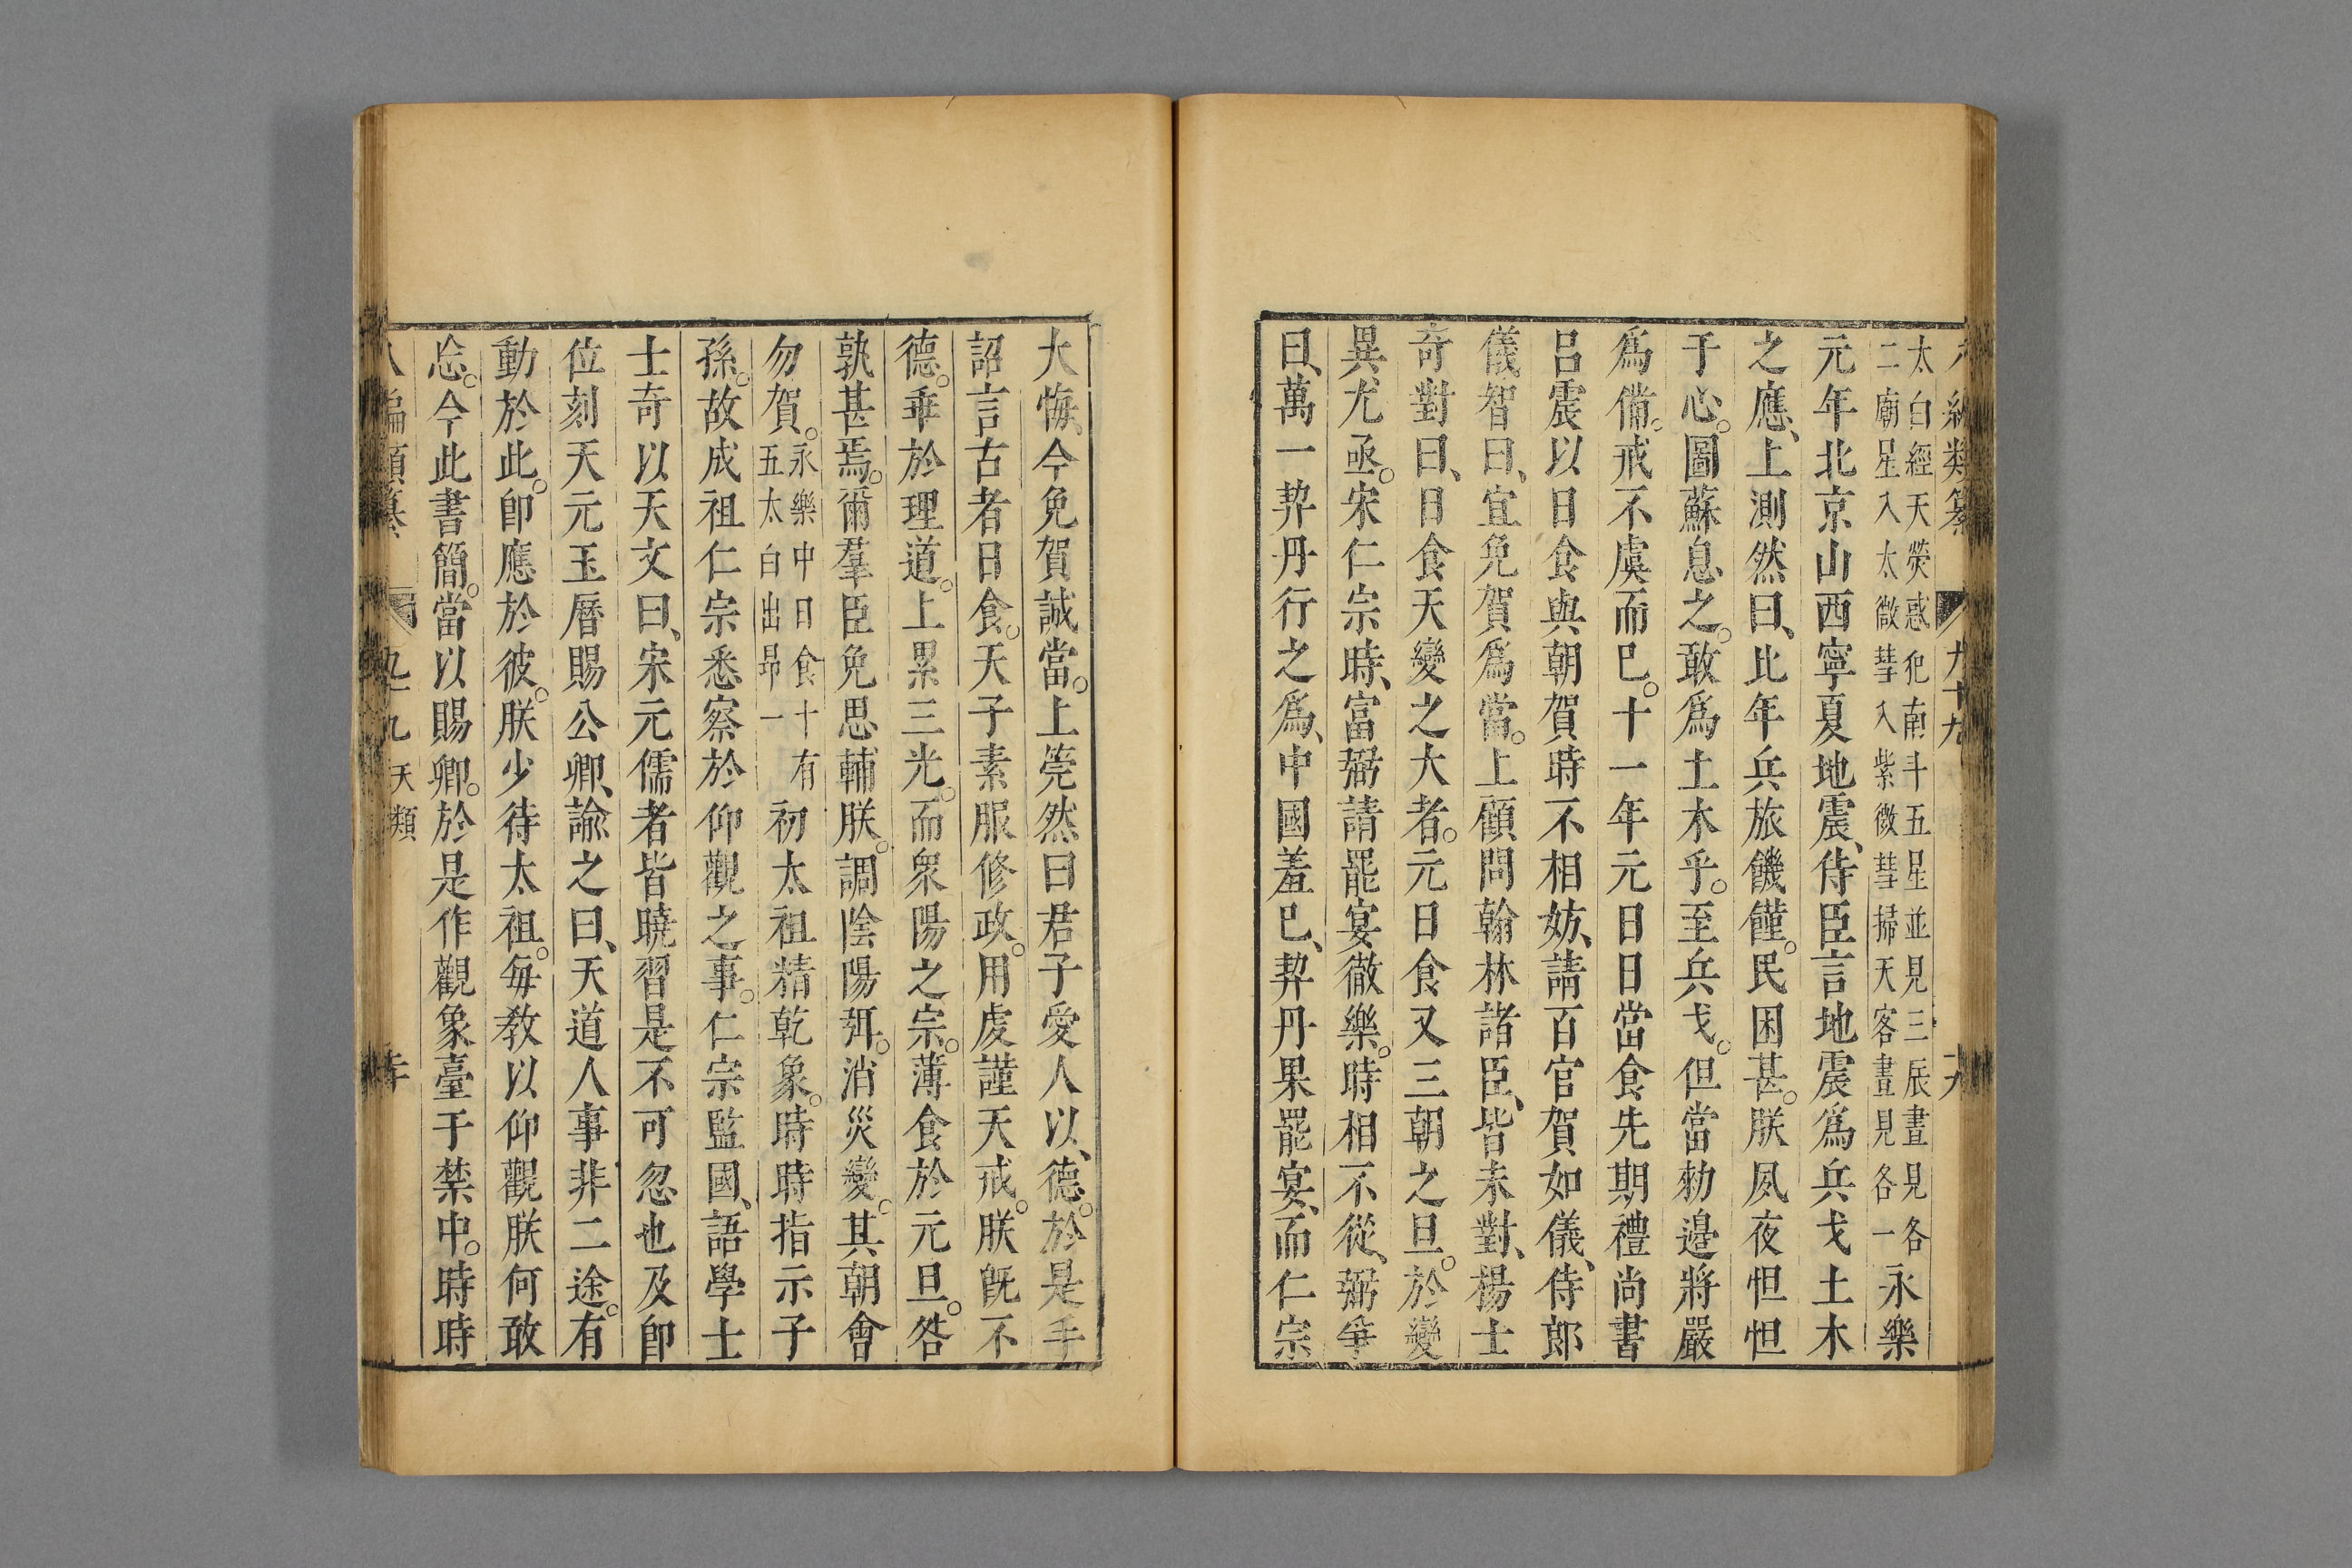 八編類纂 九十九 十九
太白經天熒惑犯南斗五星並見三辰晝見各
二廟星入太微彗入紫微彗掃天客晝見各一
永樂
元年北京山西寧夏地震、侍臣言地震爲兵戈土木
之應、上測然曰、比年兵旅饑饉。民困甚。朕夙夜怛怛
于心。圖蘇息之。敢爲土木乎。至兵戈。但當勑邉將嚴
爲備。戒不虞而巳。十一年元日日當食先期禮尚書
吕震以日食與朝賀時不相妨、請百官賀如儀、侍郎
儀智曰、宜免賀爲當。上顧問翰林諸臣、皆未對、楊士
奇對曰、日食天變之大者。元日食又三朝之旦。於變
異、尤亟。宋仁宗時、富弼請罷宴徹樂。時相不從、弼爭
曰、萬一契丹行之爲、中國羞巳、契丹果罷宴、而仁宗
大悔、今免賀誠當。上莞然曰君子愛人以、德。於是手
詔言古者日食。天子素服修政。用䖍謹天戒。朕既不
德。乖於理道。上累三光。而衆陽之宗。薄食於元旦。咎
孰甚焉。爾羣臣免思輔朕。調陰陽弭。消災變。其朝會
勿賀。
永樂中日食十有
五太白出昴一
初太祖精乾象。時時指示子
孫。故成祖仁宗悉察於仰觀之事。仁宗監國、語學士
士奇以天文曰、宋元儒者皆曉習是不可忽也及卽
位刻天元玉曆賜公卿、諭之曰、天道人事非二途。有
動於此。卽應於彼。朕少待太祖。毎教以仰觀朕何敢
忘。今此書簡。當以賜卿。於是作觀象臺于禁中。時時
八編類纂 九十九 天類